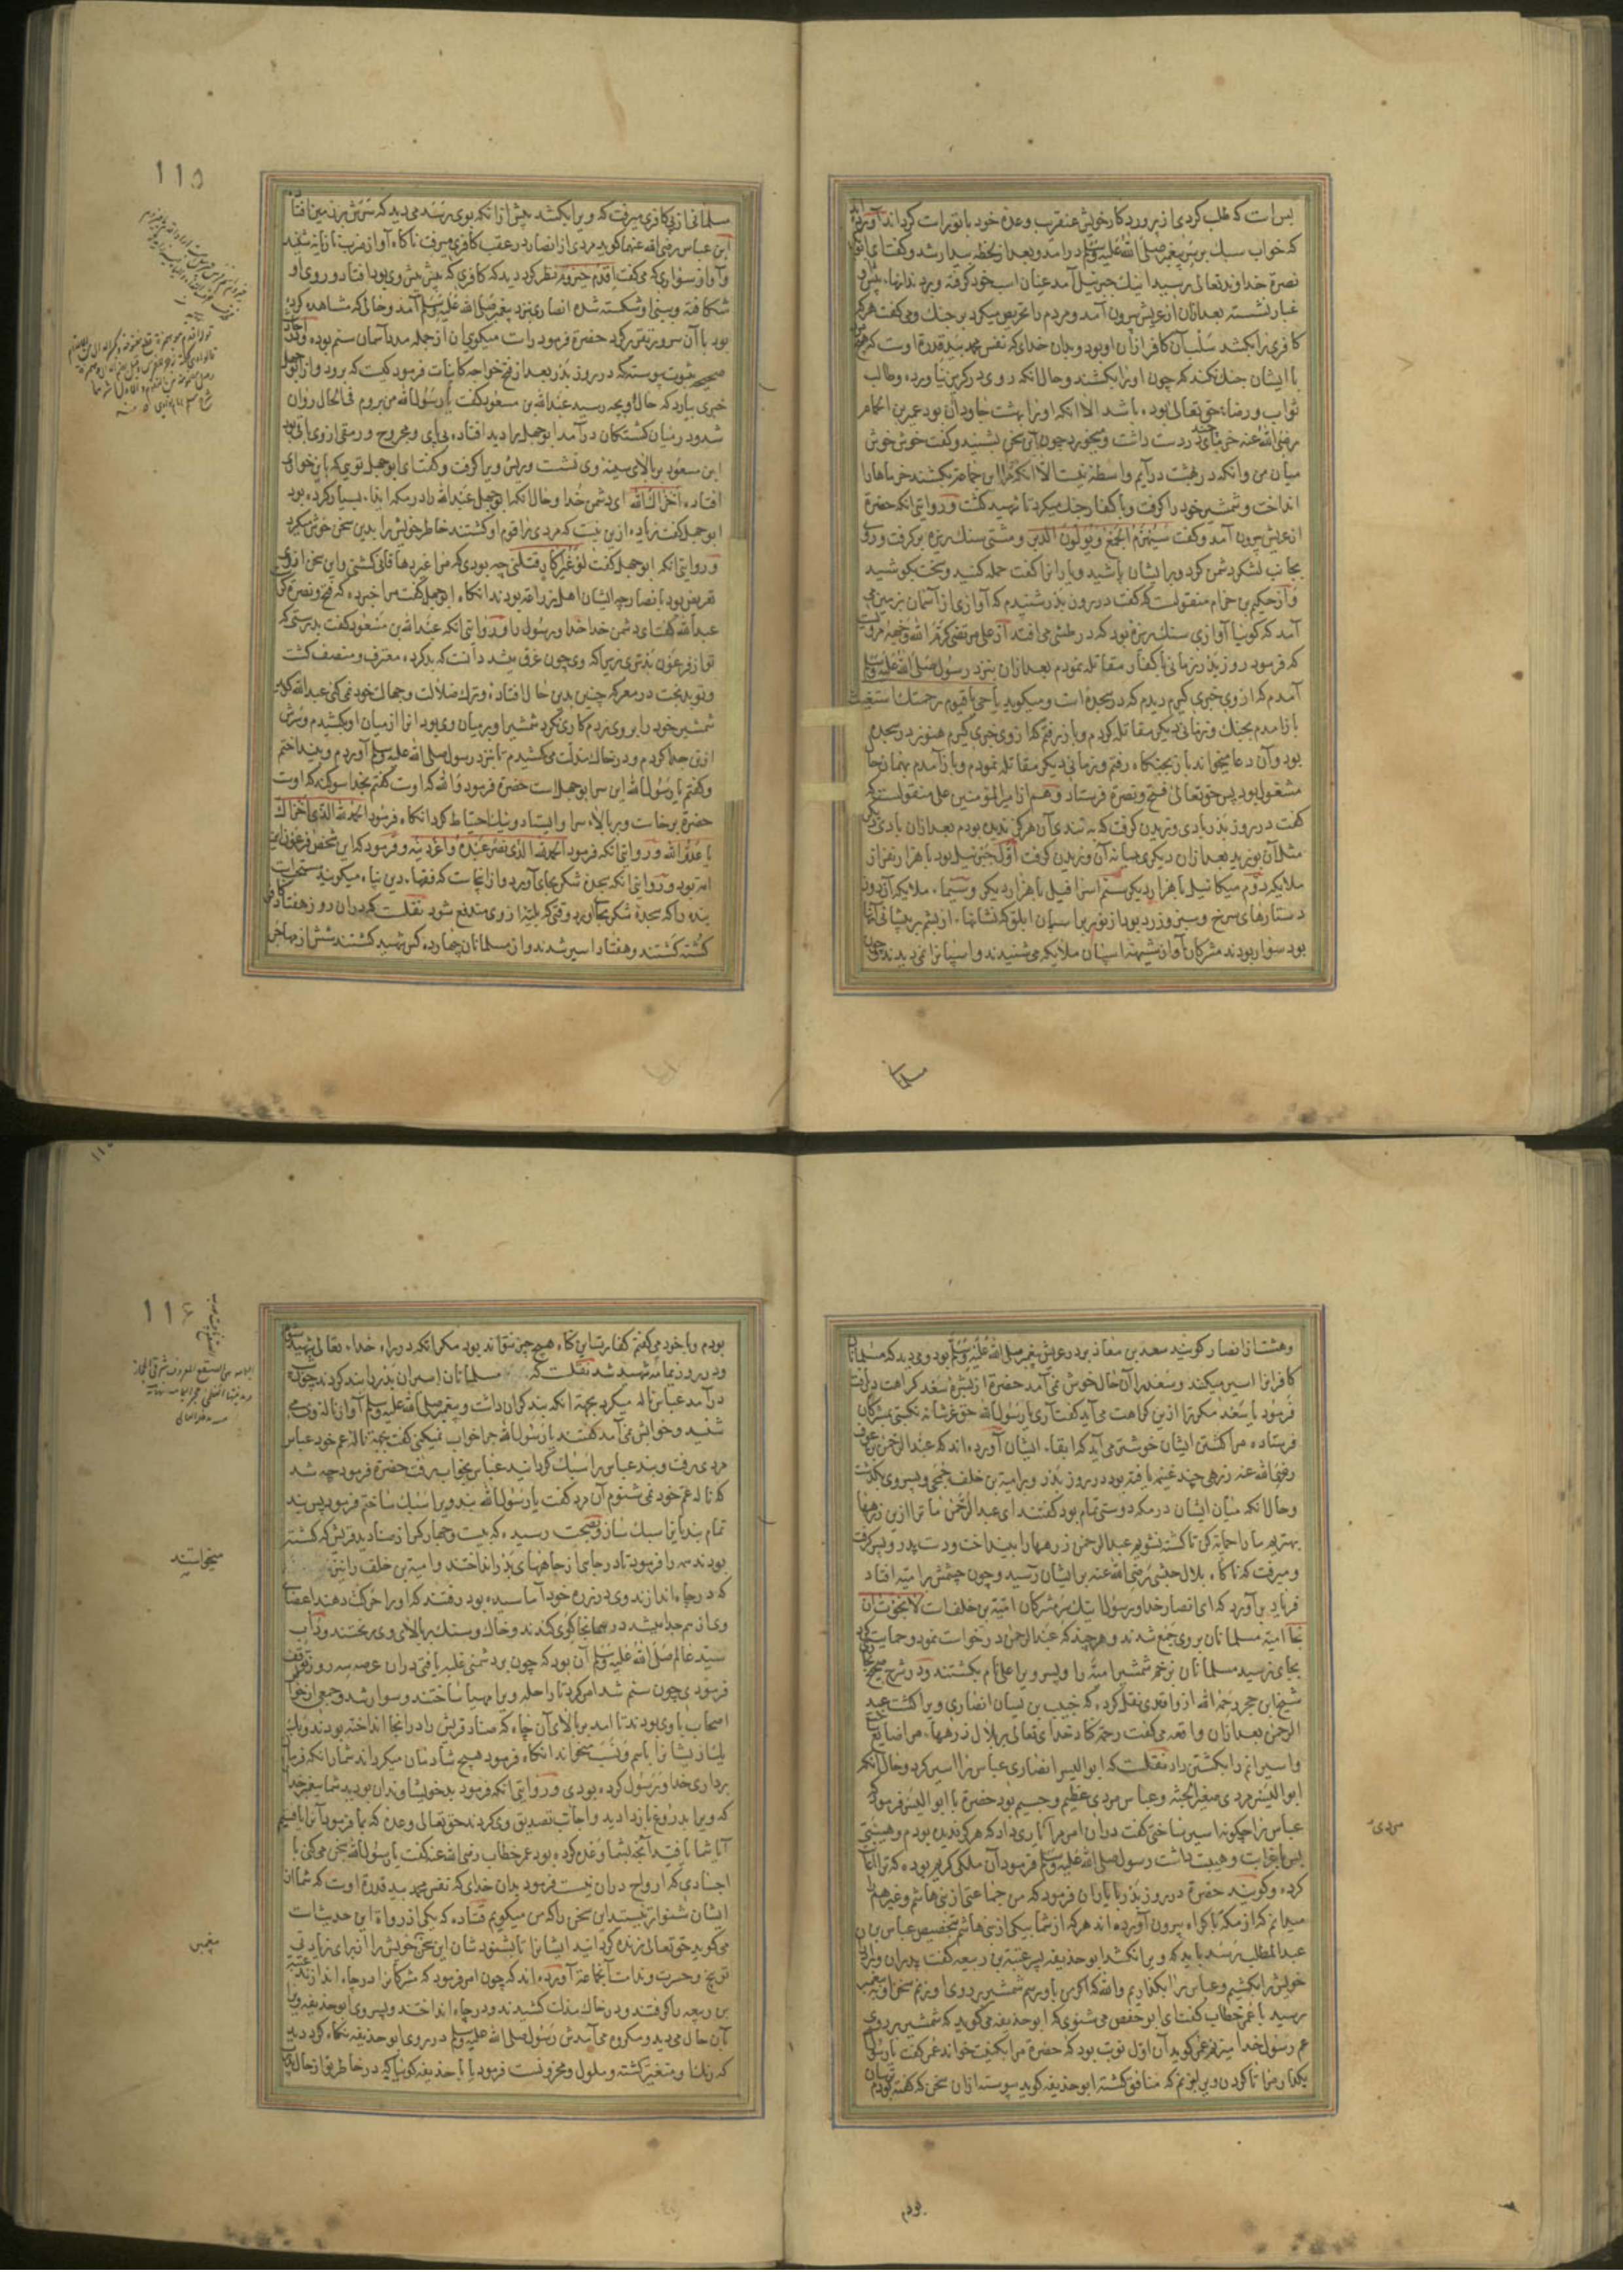 بس است که طلب کردی از پروردگار خویش عنقریب وعدهٔ خود با تو راست کرداند آورده اند
که خواب سبک بر پیغمبر صلی الله علیه وسلم درآمد و بعد از لحظه بیدار شد و گفت ای ابوبکر
نصرة خداوند تعالی رسید اینک جبرئیل آمد عنان اسب خود گرفته و بر دندانهاء پیش او
غبار نشسته بعد ازان از عریش بیرون آمد و مردم را تحریص میکرد بر جنک و می گفت هر که
کافری را بکشد سلب آن کافر ازان او بود و بدان خدای که نفس محمد بید قدرة اوست که هیچ کس
با ایشان جنک نکند که چون او را بکشند و حال آنکه روی در کریز نیاورده و طالب
ثواب و رضاء حق تعالی بوده باشد الا آنکه او را بهشت جاودان بود عمیر بن الحمام
رضی الله عنه خرمای چند در دست داشت و میخورد چون این سخن بشنید و گفت خوش خوش
میان من و آنکه در بهشت درآیم واسطه نیست الا آنکه مرا این جماعة بکشند خرماها را
انداخت و شمشیر خود را گرفت و با کفار جنک میکرد تا شهید گشت و روایتی آنکه حضرة
از عریش بیرون آمد و گفت سیهزم الجمع و یولون الدبر و مشتی سنک ریزه بر گرفت و روی
بجانب لشکر دشمن کرد و بر ایشان پاشید و یارانرا گفت حمله کنید و سخت بکوشید
و از حکیم بن حزام منقولست که گفت در روز بدر شنیدیم که آوازی از آسمان بزمین می
آمد که گویا آوازی سنک ریزه بود که در طشتی می افتد از علی مرتضی کرم الله وجهه مرویست
که فرمود روز بدر زمانی با کفار مقاتله نمودم بعد ازان بنزد رسول صلی الله علیه وسلم
آمدم که از وی خبری گیرم دیدم که در سجده است و میگوید یا حی یا قیوم برحمتک استغیث
باز آمدم بجنک و زمانی دیگر مقاتله کردم و باز رفتم که از وی خبری گیرم هنوز در سجده
بود و آن دعا میخواند باز بجنکگاه رفتم و زمانی دیگر مقاتله نمودم و باز آمدم بهمان دعا
مشغول بود پس حق تعالی فتح و نصرة فرستاد و هم از امیر المؤمنین علی منقولست که
گفت در روز بدر بادی وزیدن گرفت که به تندی آن هرگز ندیده بودم بعد ازان بادی دیگر
مثل آن بوزید بعد ازان دیگری بسانه آن وزیدن گرفت اول جبرئیل بود با هزار نفر از
ملایکه دوم میکائیل با هزار دیگر سیم اسرافیل با هزار دیگر و سیماء ملایکه آن روز
دستارهای سرخ و سبز و زرد بود از نور بر اسپان ابلق که نشانهاء از پشم بر پیشانی آنها
بود سوار بودند مشرکان آواز شیهه اسپان ملایکه می شنیدند و اسپانرا نمی دیدند و چون
مسلمانی
١١٥
مسلمانی از پی کافری میرفت که ویرا بکشد پیش از انکه بوی رسند می دید که سرش بر زمین افتاد
ابن عباس رضی الله عنهما گوید مردی از انصار در عقب کافری میرفت ناگاه آواز ضرب تازیانه شنید
و آواز سواری که می گفت اقدم حیزوم نظر کرد دید که کافری که پیش پیش وی بود افتاد و روی او
شکافته و بینی او شکسته شده انصاری بنزد پیغمبر صلی الله علیه وسلم آمد و حالی که مشاهده کرده
بود با آن سرور تقریر کرد حضرة فرمود راست میگوی آن از جمله مدد آسمان سیم بوده و در احادیث
صحیحه بثبوت پیوسته که در روز بدر بعد از فتح خواجه کاینات فرمود کیست که برود و از ابو جهل
خبری بیارد که حال او بچه رسید عبدالله بن مسعود گفت یا رسول الله من بروم فی الحال روان
شد و در میان کشتکان درآمد ابو جهل را دید افتاده بی پای و مجروح و رمقی از وی باقی بود
ابن مسعود بر بالای سینه وی نشست و ریش ویرا گرفت و گفت ای ابو جهل توی که باین خواری
افتاده اخزاک الله ای دشمن خدا و حال آنکه ابو جهل عبدالله را در مکه ایذاء بسیار کرده بود
ابو جهل گفت زیاده ازین نیست که مردی را قوم او کشتند خاطر خویش را بدین سخن خوش میکرد
و روایتی آنکه ابو جهل گفت لو غیر اکار قتلنی چه بودی که مرا غیر دهاقانی کشتی و این سخن از وی
تعریض بود با نصار چه ایشان اهل زراعة بودند انگاه ابو جهل گفت مرا خبر ده که فتح و نصرة کراست
عبدالله گفت ای دشمن خدا خدا و رسول را و روایتی آنکه عبدالله بن مسعود گفت بدرستی که
تو از فرعون بدتری زیرا که وی چون غرق میشد دانست که بد کرده معترف و منصف گشت
و تو بدبخت در معرکه چنین بدین حال افتاده و ترک ضلالت و جهالت خود نمی کنی عبدالله گوید
شمشیر خود را بر وی زدم کاری نکرد شمشیر او بر میان وی بود آنرا از میان او بکشیدم و سرش
از تن جدا کردم و در خاک مذلت می کشیدم تا بنزد رسول صلی الله علیه وسلم آوردم و بینداختم
و گفتم یا رسول الله این سر ابو جهل است حضرة فرمود والله که اوست گفتم بخدا سوکند که اوست
حضرة برخاست و بر بالاء سر او ایستاد و نیک احتیاط کرد انگاه فرمود الحمد لله الذی اخزاک
یا عدو الله و روایتی آنکه فرمود الحمد لله الذی نصر عبده و اعز دینه و فرمود که این شخص فرعون این
امة بود و روایتی آنکه سجده شکر بجای آورد و از اینجاست که فقهاء دین پناه میگویند مستحب است
بنده را که سجدهٔ شکر بجا آورد وقتی که بلیه از وی مندفع شود نقلست که دران روز هفتاد کافر
کشته گشتند و هفتاد اسیر شدند و از مسلمانان چهارده کس شهید گشتند شش از مهاجر
وهشت از انصار گویند سعد بن معاذ بر در عریش پیغمبر صلی الله علیه وسلم بود و می دید که مسلمانان
کافرانرا اسیر میکنند و سعد را آن حال خوش نمی آمد حضرة از بشره سعد کراهت دریافت
فرمود یا سعد مگر ترا ازین کراهت می آید گفت آری یا رسول الله حق عز شانه نکبتی بمشرکان
فرستاده مرا کشتن ایشان خوشتر می آید که ابقاء ایشان آورده اند که عبدالرحمن بن عوف
رضی الله عنه زرهی چند غنیمة یافته بود در روز بدر و بر امیة بن خلف جمحی و پسر وی بگذشت
و حال آنکه میان ایشان در مکه دوستی تمام بود گفتند ای عبدالرحمن ما ترا ازین زرهها
بهتریم ما را حمایة کن تا کشته نشویم عبدالرحمن زرهها را بینداخت و دست پدر و پسر گرفت
و میرفت که ناگاه بلال حبشی رضی الله عنه بر ایشان رسید و چون چشمش بر امیه افتاد
فریاد برآورد که ای انصار خدا و رسول اینک سر مشرکان امیة بن خلف است لا نجوت ان
نجا امیة مسلمانان بر وی جمع شدند و هر چند که عبدالرحمن درخواست نمود و حمایت کرد
بجای نرسید مسلمانان بزخم شمشیر امیه را و پسر ویرا علی تمام بکشتند و در شرح صحیح بخاری
شیخ ابن حجر رحمه الله از واقدی نقل کرده که خبیب بن یسان انصاری ویرا کشت عبد
الرحمن بعد ازان واقعه می گفت رحمة کناد خدای تعالی بر بلال زرههاء مرا ضایع ساخت
و اسیرانم را بکشتن داد نقلست که ابو الیسر انصاری عباس را اسیر کرد و حال آنکه
ابو الیسر مردی صغیر الجثه و عباس مردی عظیم و جسیم بود حضرة با ابو الیسر فرمود که
عباس را چگونه اسیر ساختی گفت دران امر مرا یاری داد که هرگز ندیده بودم و هیئتی
بس با غرابت و هیبت داشت رسول صلی الله علیه وسلم فرمود آن ملکی کریم بوده که ترا اعانت
کرده و گویند حضرة در روز بدر با یاران فرمود که من جماعتی از بنی هاشم و غیر هم را
میدانم که از مکه باکراه بیرون آورده اند هر که از شما بیکی از بنی هاشم بتخصیص عباس بن
عبدالمطلب رسد باید که ویرا نکشد ابو حذیفه پسر عتبة بن ربیعه گفت پدران و برادران
خویش را بکشیم و عباس را بگذاریم والله که اگر من باو رسم شمشیر بر روی او زنم سخن او به پیغمبر
رسید با عمر خطاب گفت ای ابو حفص می شنوی که ابو حذیفه می گوید که شمشیر بر روی
عم رسول خدا میزنم عمر گوید آن اول نوبت بود که حضرة مرا بکنیت خواند عمر گفت یا رسول الله
بگذار مرا تا گردن ویرا بزنم که منافق گشته ابو حذیفه گوید پیوسته ازان سخن که گفته بودم ترسان
مردی
بودم
١١٦
بودم و با خود می گفتم کفارت این گناه هیچ چیز نتواند بود مگر آنکه در راه خداء تعالی شهید شوم
و در روز یمامه شهید شد نقلست که مسلمانان اسیران بدر را بند کردند چون شب
درآمد عباس ناله میکرد بجهة آنکه بند گران داشت و پیغمبر صلی الله علیه وسلم آواز ناله وی می
شنید و خوابش نمی آمد گفتند یا رسول الله چرا خواب نمیکنی گفت بجهة ناله عم خود عباس
مردی برفت و بند عباس را سبک گردانید عباس بخواب رفت حضرة فرمود چه شد
که ناله عم خود نمی شنوم آن مرد گفت یا رسول الله بند ویرا سبک ساختم فرمود پس بند
تمام بندیانرا سبک ساز و بصحت رسیده که بیست و چهار کس از صنادید قریش که کشته
بودند همه را فرمود تا در چاهی از چاههای بدر انداختند و امیة بن خلف را نیز
که در چاه اندازند وی در زره خود آماسیده بود رفتند که او را حرکت دهند اعضای
وی از هم جدا میشد در همانجا گوی کندند و خاک و سنک بر بالای وی ریختند و داب
سید عالم صلی الله علیه وسلم آن بود که چون بر دشمنی غلبه یافتی دران عرصه سه روز توقف
فرمودی چون سیم شد امر کرد تا راحله ویرا مهیا ساختند و سوار شد و جمعی از خواص
اصحاب با وی بودند تا آمد بر بالای آن چاه که صنادید قریش را در انجا انداخته بودند و یک
یک از یشانرا باسم و نسب میخواند انگاه فرمود هیچ شادمان میگرداند شمارا آنکه فرمان
برداری خدا و رسول کرده بودی و روایتی آنکه فرمود بد خویشاوندان بودید شما پیغمبر خدا را
که ویرا بدروغ باز دادید و اجانب تصدیق وی کردند حق تعالی وعده که بما فرمود آنرا یافتیم
آیا شما یافتید آنچه بشما وعده کرده بود عمر خطاب رضی الله عنه گفت یا رسول الله سخن می کنی با
اجسادی که ارواح در ان نیست فرمود بدان خدای که نفس محمد بید قدرة اوست که شما از
ایشان شنواتر نیستید این سخن را که من میگویم قتاده که یکی از رواة این حدیث است
می گوید حق تعالی زنده گردانید ایشانرا تا بشنود شان این سخن خویش را از برای زیادتی
توبیخ و حسرت و ندامت آنجماعة آورده اند که چون امر فرمود که مشرکانرا در چاه اندازند عتبة
بن ربیعه را گرفتند و در خاک مذلت کشیدند و در چاه انداختند و پسر وی ابو حذیفه ویرا
بآن حال می دید و مکروه می آمدش رسول صلی الله علیه وسلم در روی ابو حذیفه نگاه کرد دید
که رنک او متغیر گشته و ملول و محزونست فرمود یا ابا حذیفه گویا که در خاطر تو از حال پدر
میخواستند